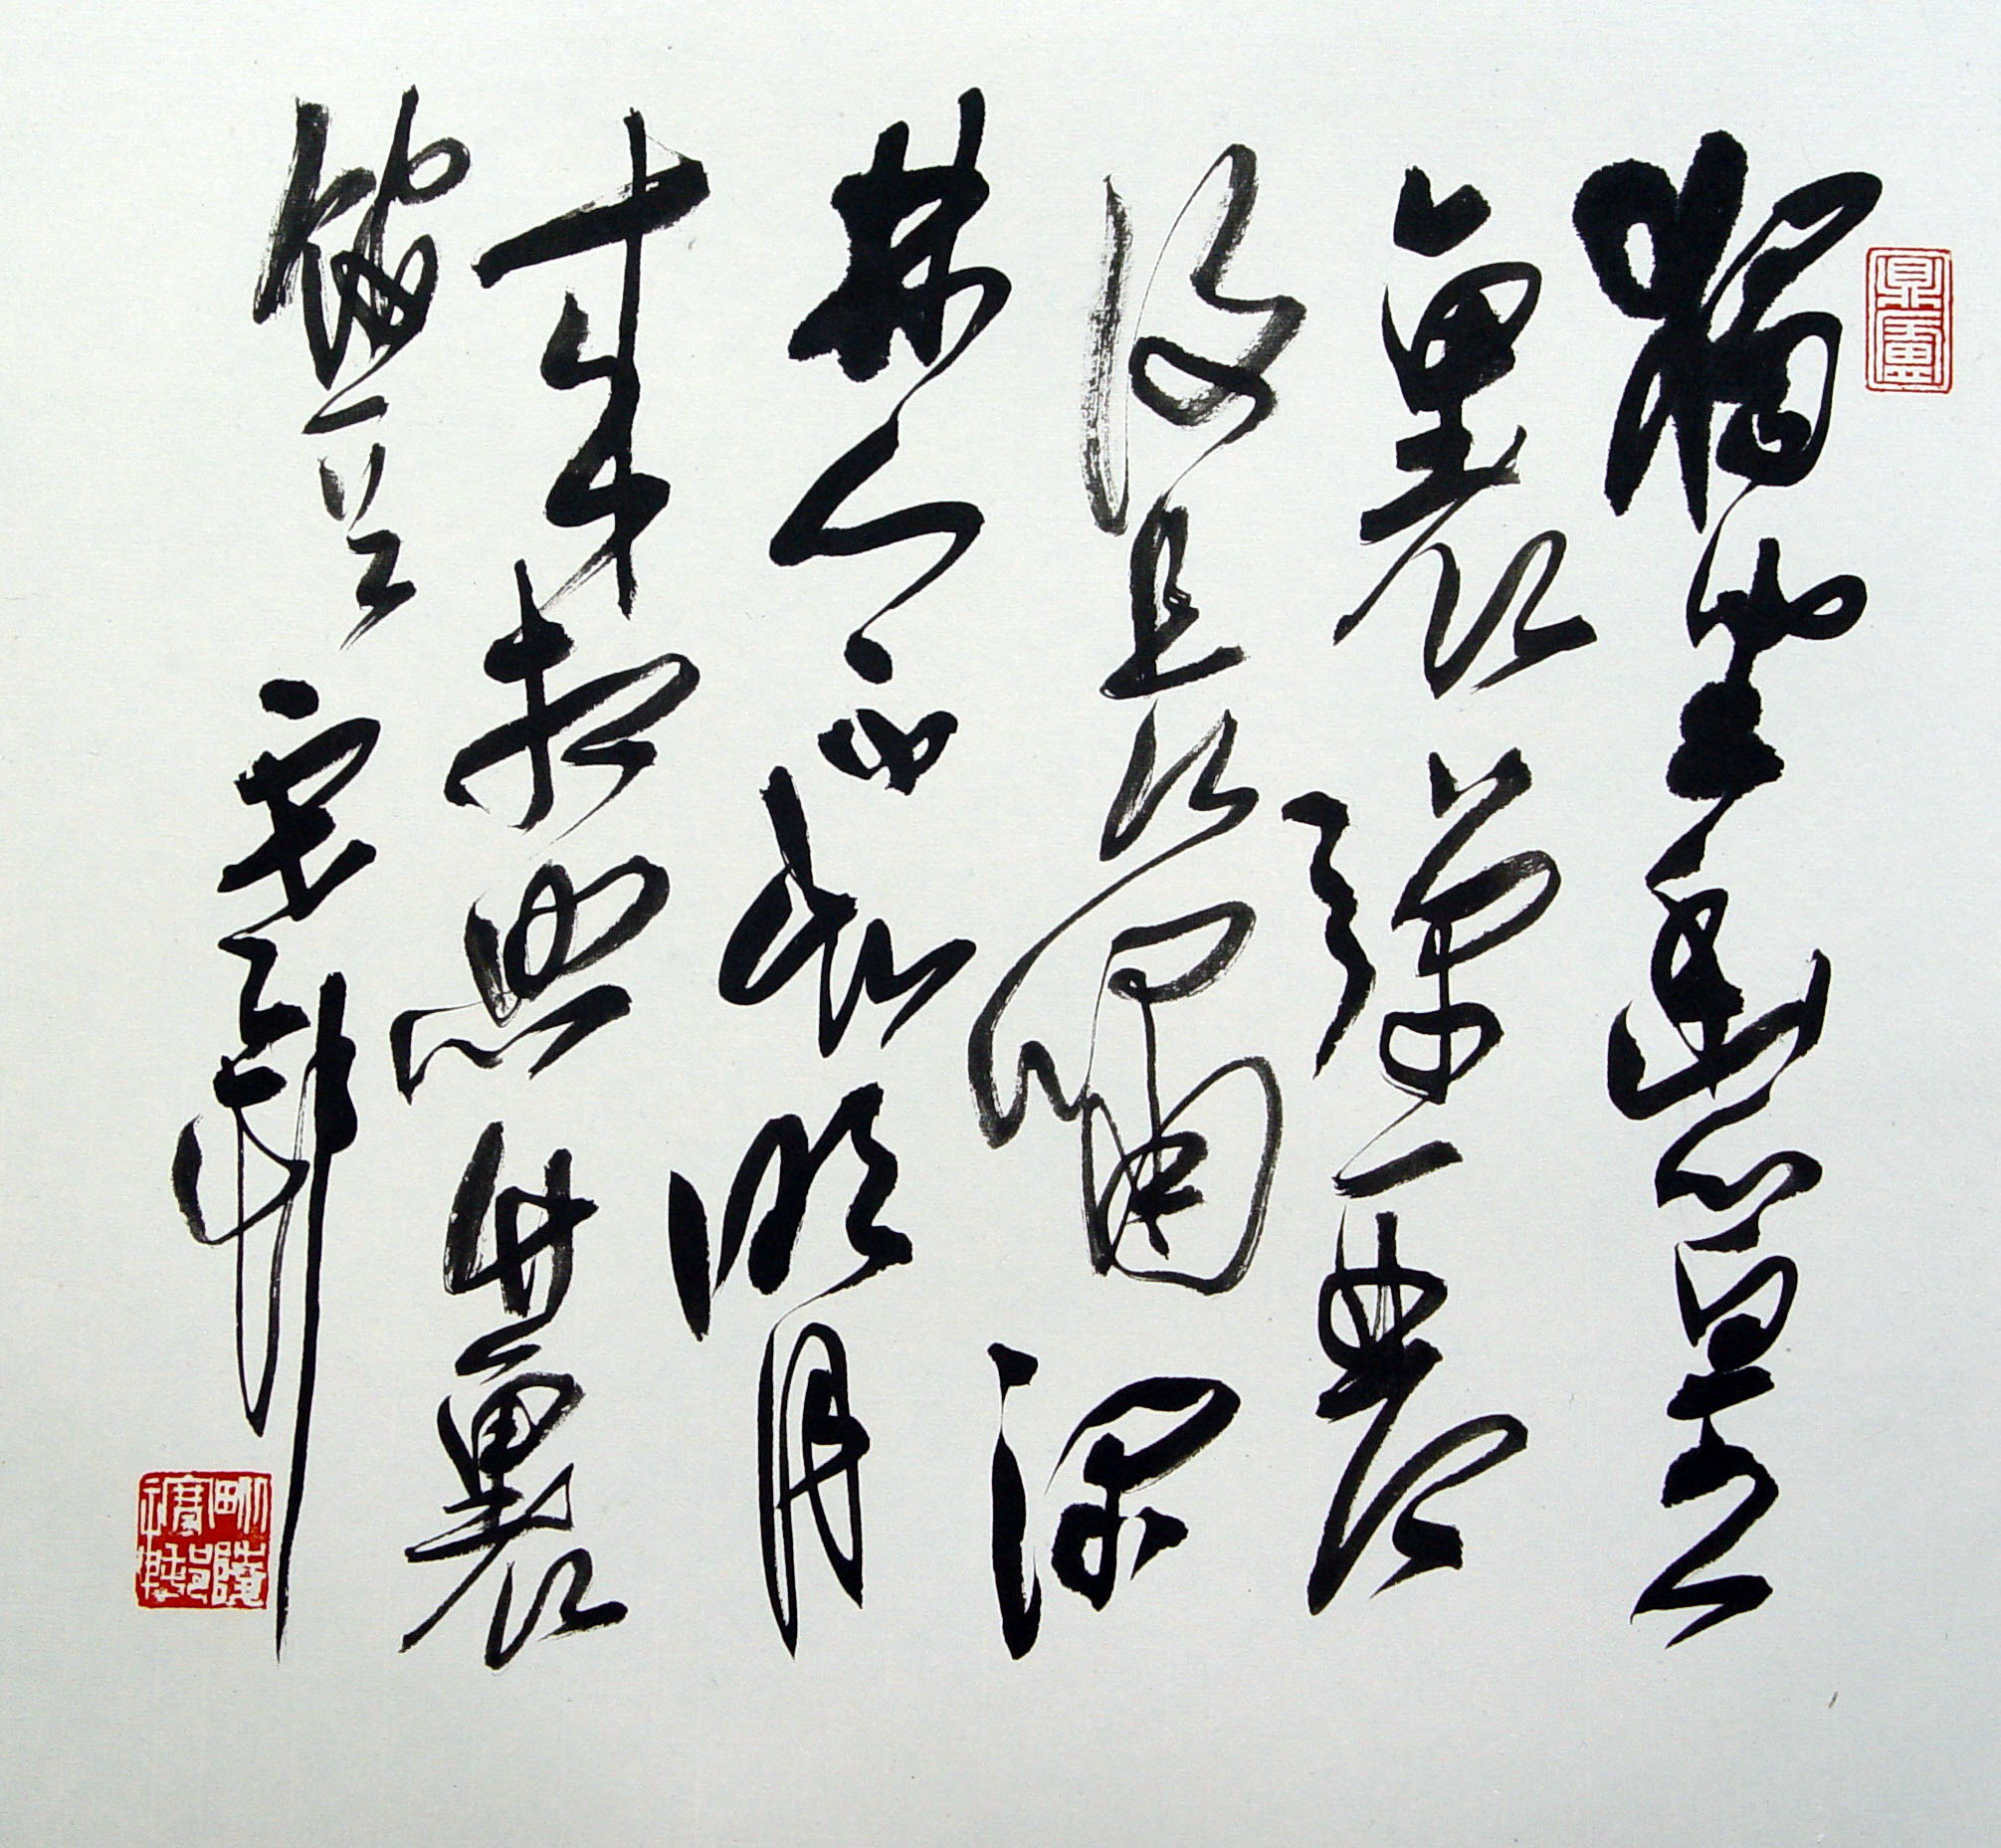 獨坐幽篁
裏彈琴
復長嘯深
林人不知明月
來相照竹裏
館